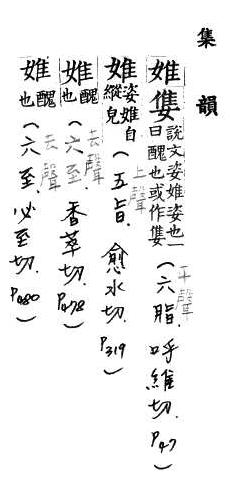 集韻
婎䧳說文姿婎姿也一曰醜也或作䧳(六脂.呼維切.P47)平聲
婎姿婎自縱皃(五旨.愈水切.P319)上聲
婎醜也(六至.香萃切.P478)去聲
婎醜也(六至.必至切.P480)去聲